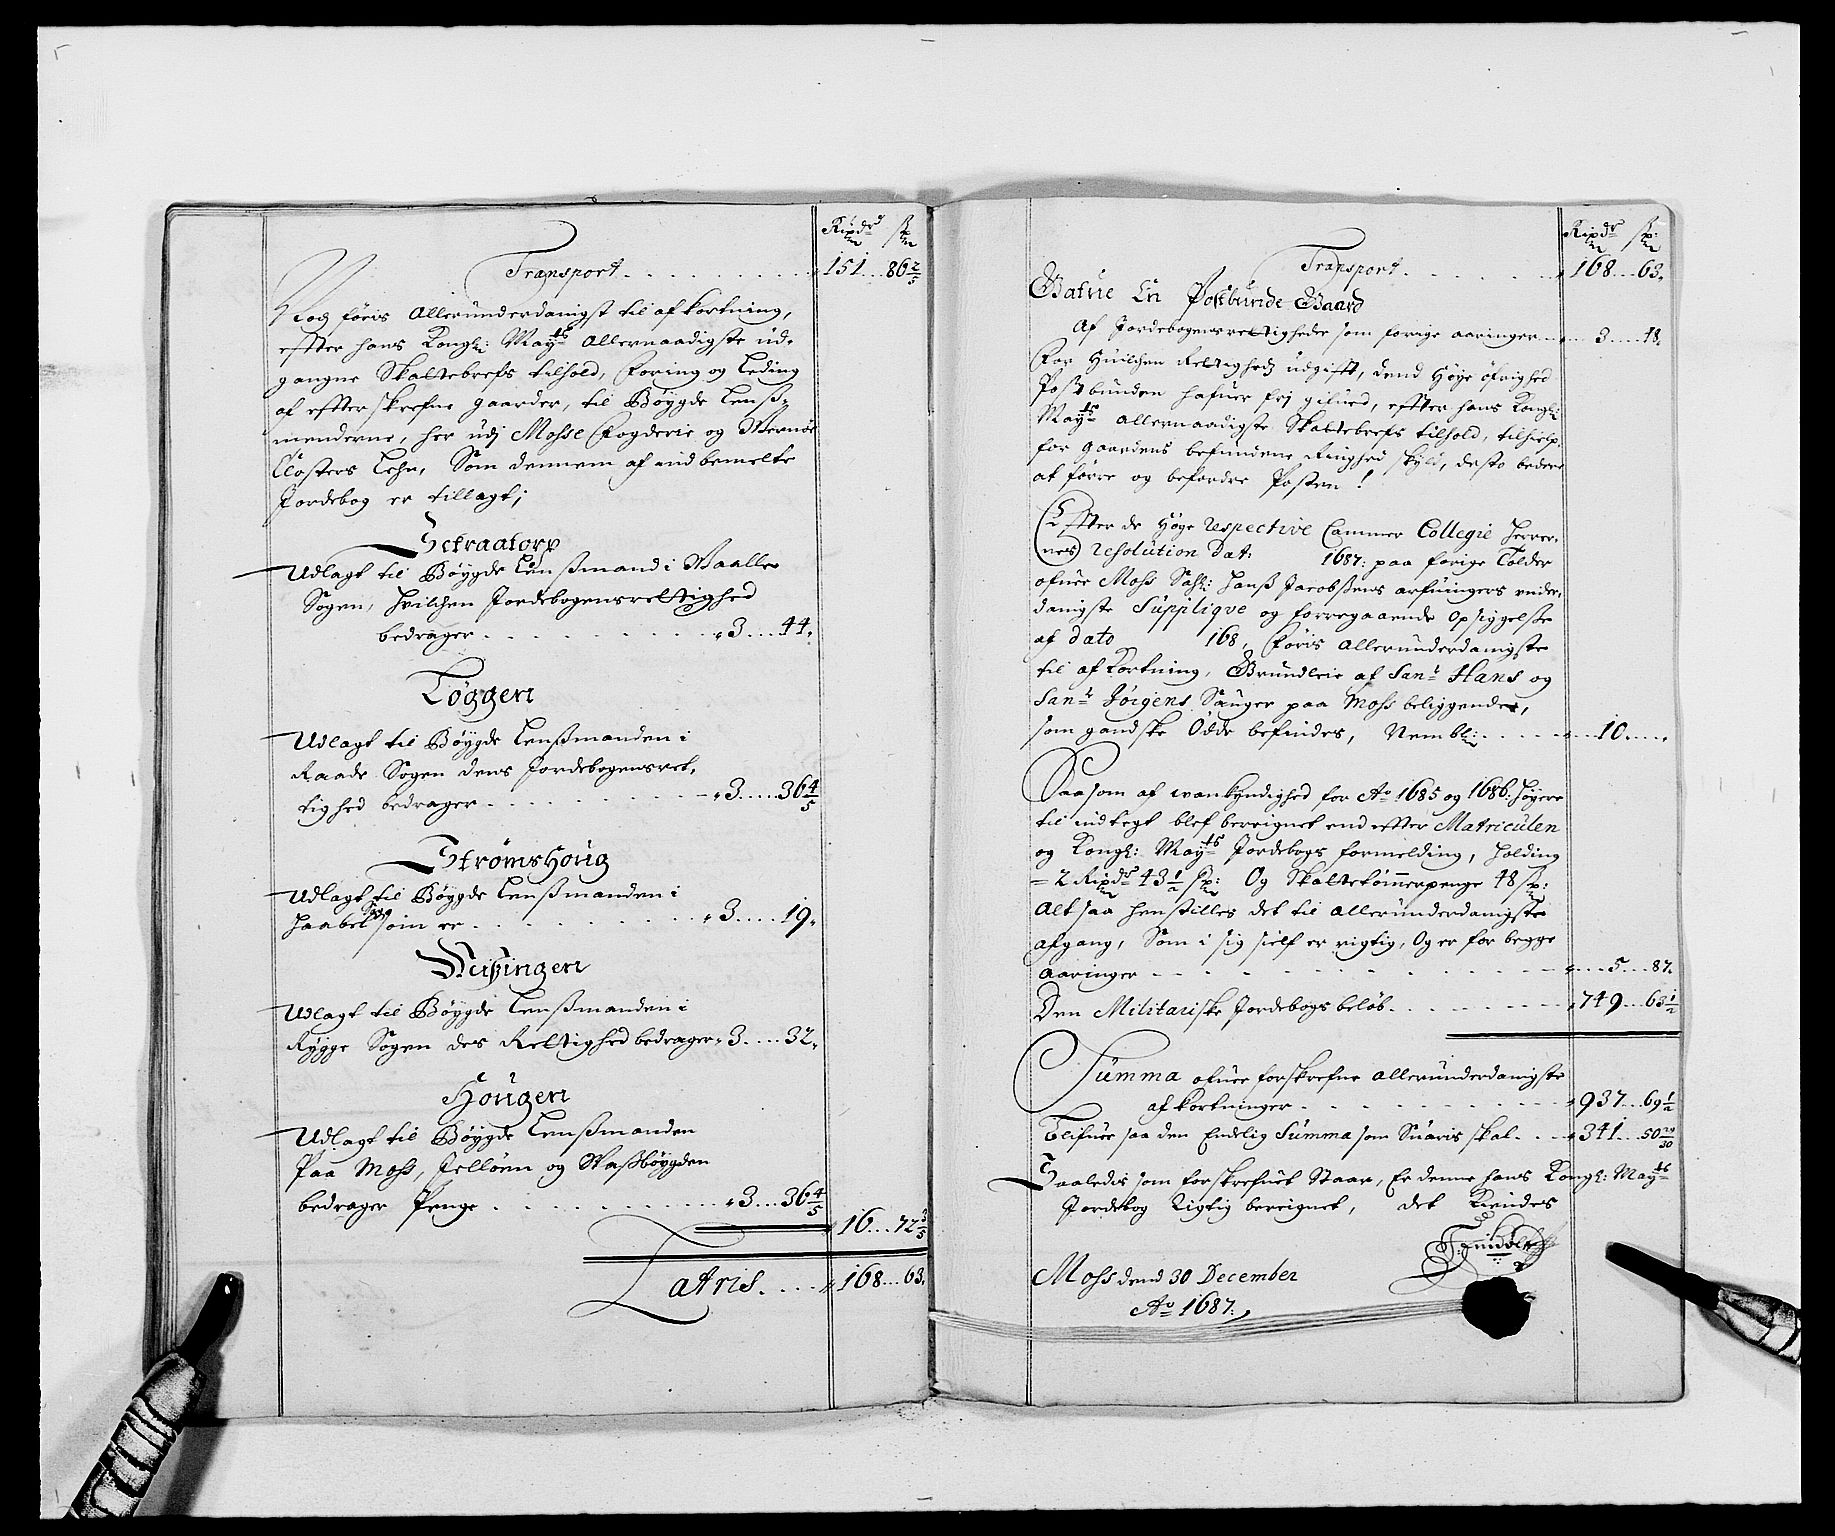 Rixdr sk
Transport . . . . . . . . . 151 . . 86 2/5
Nog føris Allerunderdanigst til afkortning,
effter hans Kongl: Mayts Allernaadigste ud-
gangne Skattebrefs tilhold, Foring og Leding
af effterskrefne gaarder, til Bøygde Lenß-
menderne, her udj Mosse Fogderie og Wernøe
Closters Lehn, Som dennem af indbemelte
Jordebog er tillagt;
Setraatorp
Udlagt til Bøygde Lenßmand i Waaller
Sogen, hvilchen Jordebogensrettighed
bedrager . . . . . . . . . 3 . . . 44.
Løggen
Udlagt til Bøygde Lenßmanden i
Raade Sogen dens Jordebogensret,
tighed bedrager . . . . . . . . . 3 . . . 36 4/5
Strømshoug
Udlagt til Bøygde Lenßmanden i
Haabel Sog som er . . . . . . . . . 3 . . . 19.
Udlagt til Bøygde Lenßmanden i
Rygge Sogen des Rettighed bedrager 3 . . . 32.
Hougen
Udlagt til Bøygde Lenßmanden
Paa Moss, Jelløen og Waßbøygden
bedrager Penge . . . . . . . . . 3 . . . 36 4/5
16 . . . 72 3/5
Latris . . . . 168 . . . 63.
Rixdr sk:
Transport . . . . . . . . 168 . . . 63.
Gatue En Postbunde Gaard
Af Jordebogensrettighede som forige aaringer . . . 3 . . . 18.
For Huilchen Rettigheds udgifft, dend Høye øfrighed
Postbunden hafuer frj gifued, effter hans Kongl:
Mayts allernaadigste Skattebrefs tilhold, tilhielp
for gaardens befundene Ringhed skyld, desto bedere
at førre og befordre Posten!
Effter de Høge respective Cammer Collegie Herrer-
nes resolution Dat: 1687: paa forige Tolder
ofuer Moss Sahl: Hanß Jacobßens arfuingers under-
danigste Suppliqve og forregaaende Opsiggelße
af dato 168, Føris allerunderdanigste
til afkortning, Grundleie af Sanr Hans og
Sanr Jörgens Sauger paa Moss beliggende,
som gandske Øde befindes, Nembl: . . . . . . 10. . . .
Saasom af wankyndighed for Ao 1685 og 1686: høyere
til indtegt blef bereignet end effter Matriculen
og Kongl: Mayts Jordebogs formelding, holding
2 Rixdr 43 1/2 sk: Og Skattetømmerpenge 48 sk:
Altsaa henstilles det til allerunderdanigste
afgang, Som i sig sielf er rigtig, Og er for begge
aaringer . . . . . . . . . 5 . . . 87.
Den Militariske Jordebogs beløb . . . . . . . 749 . . . 63 1/2
Summa ofuer forskrefne allerunderdanigste
afkortninger . . . . . . . . . 937 . . . 69 1/2
Blifuer saa den Endelig Summa som Suaris skal . . . 341 . . . 50 29/30
Saaledis som forskrefuet Staar, Er denne hans Kongl: Mayts
Jordebog Rigtig bereignet, det Kiendes
Moss dend 30 December
Ao 1687.